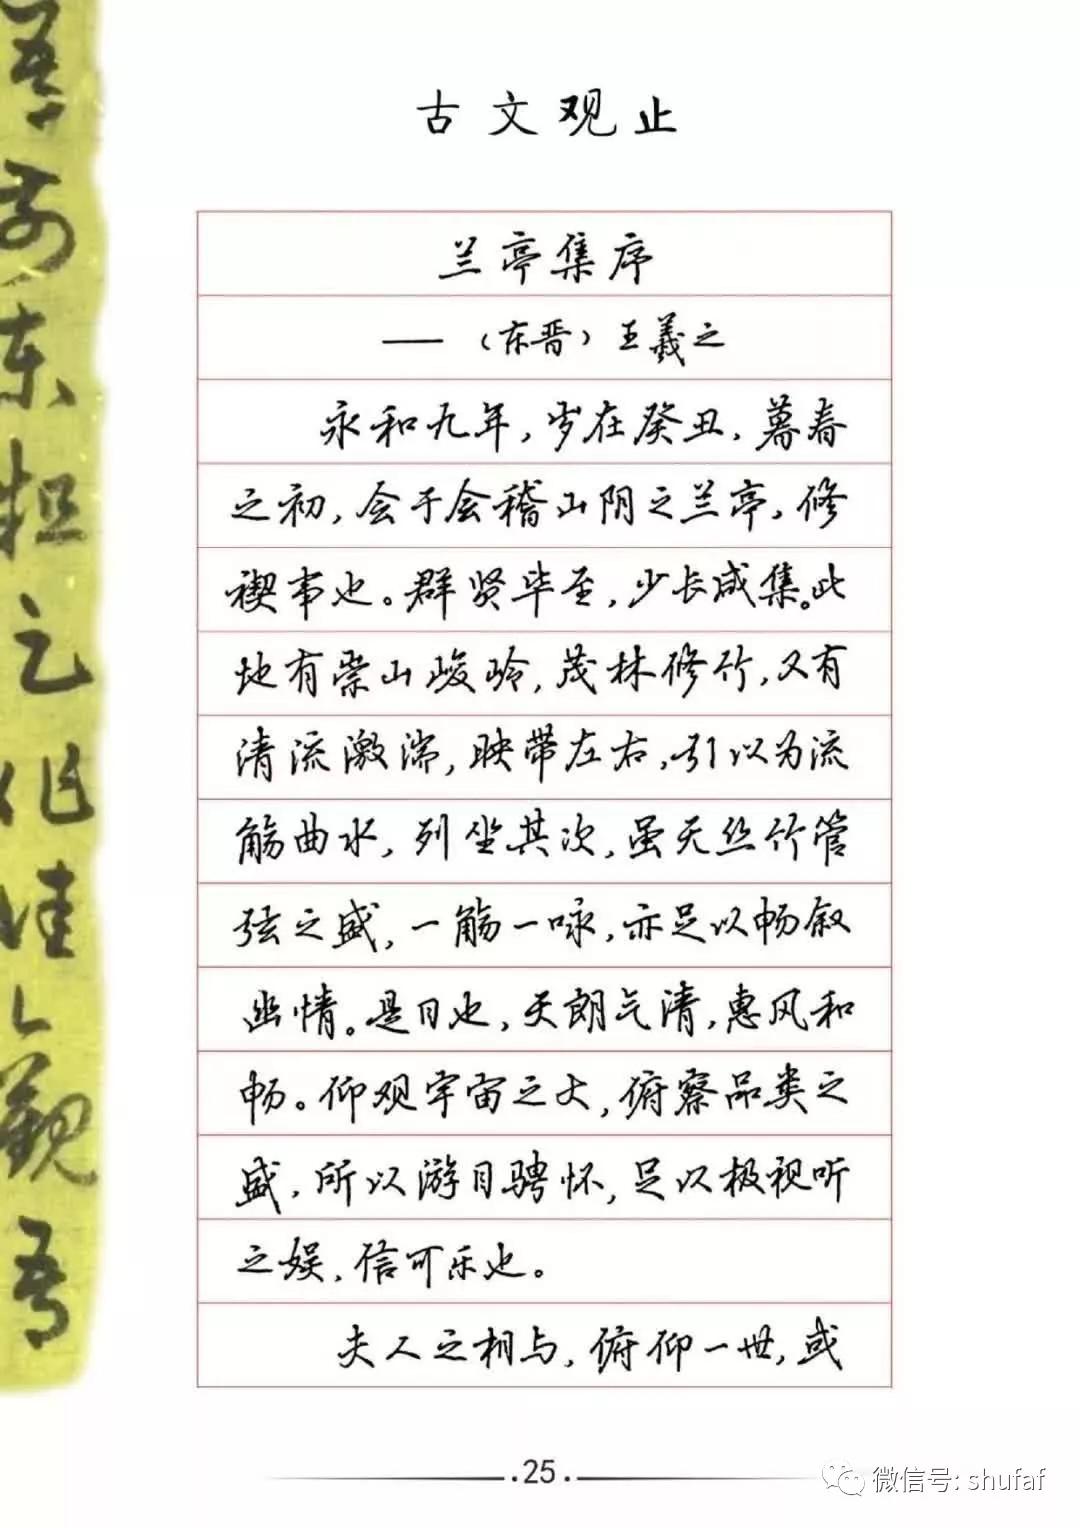 古文观止
兰亭集序
——（东晋）王羲之
永和九年，岁在癸丑，暮春
之初，会于会稽山阴之兰亭，修
禊事也。群贤毕至，少长咸集。此
地有崇山峻岭，茂林修竹，又有
清流激湍，映带左右，引以为流
觞曲水，列坐其次，虽无丝竹管
弦之盛，一觞一咏，亦足以畅叙
幽情。是日也，天朗气清，惠风和
畅。仰观宇宙之大，俯察品类之
盛，所以游目骋怀，足以极视听
之娱，信可乐也。
夫人之相与，俯仰一世，或
.25.
微信号: shufaf